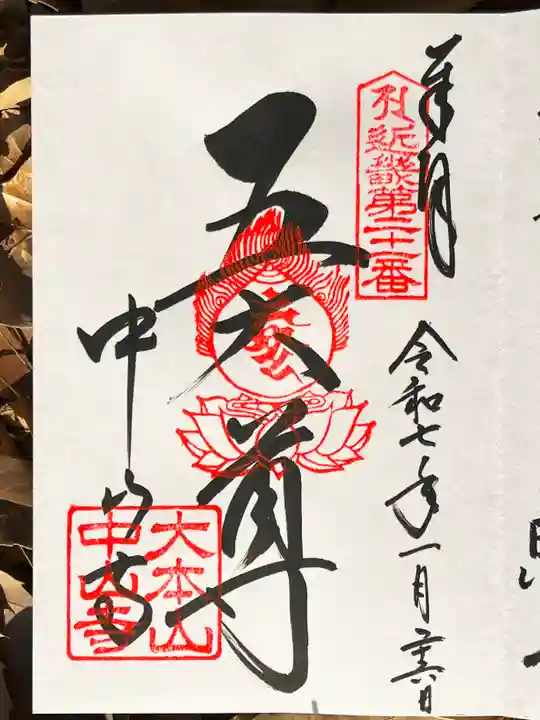 奉拝
令和七年一月二十六日
近畿第二十一番
五大尊
中山寺
大本山
中山寺